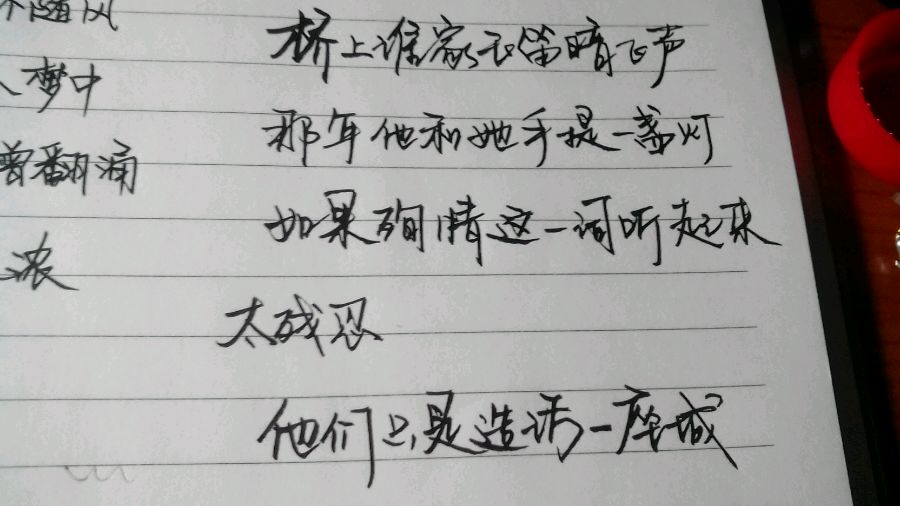 不随风
梦中
曾翻涌
浓
桥上谁家玉笛暗飞声
那年他和她手提一盏灯
如果殉情这一词听起来
太残忍
他们只是造访一座城